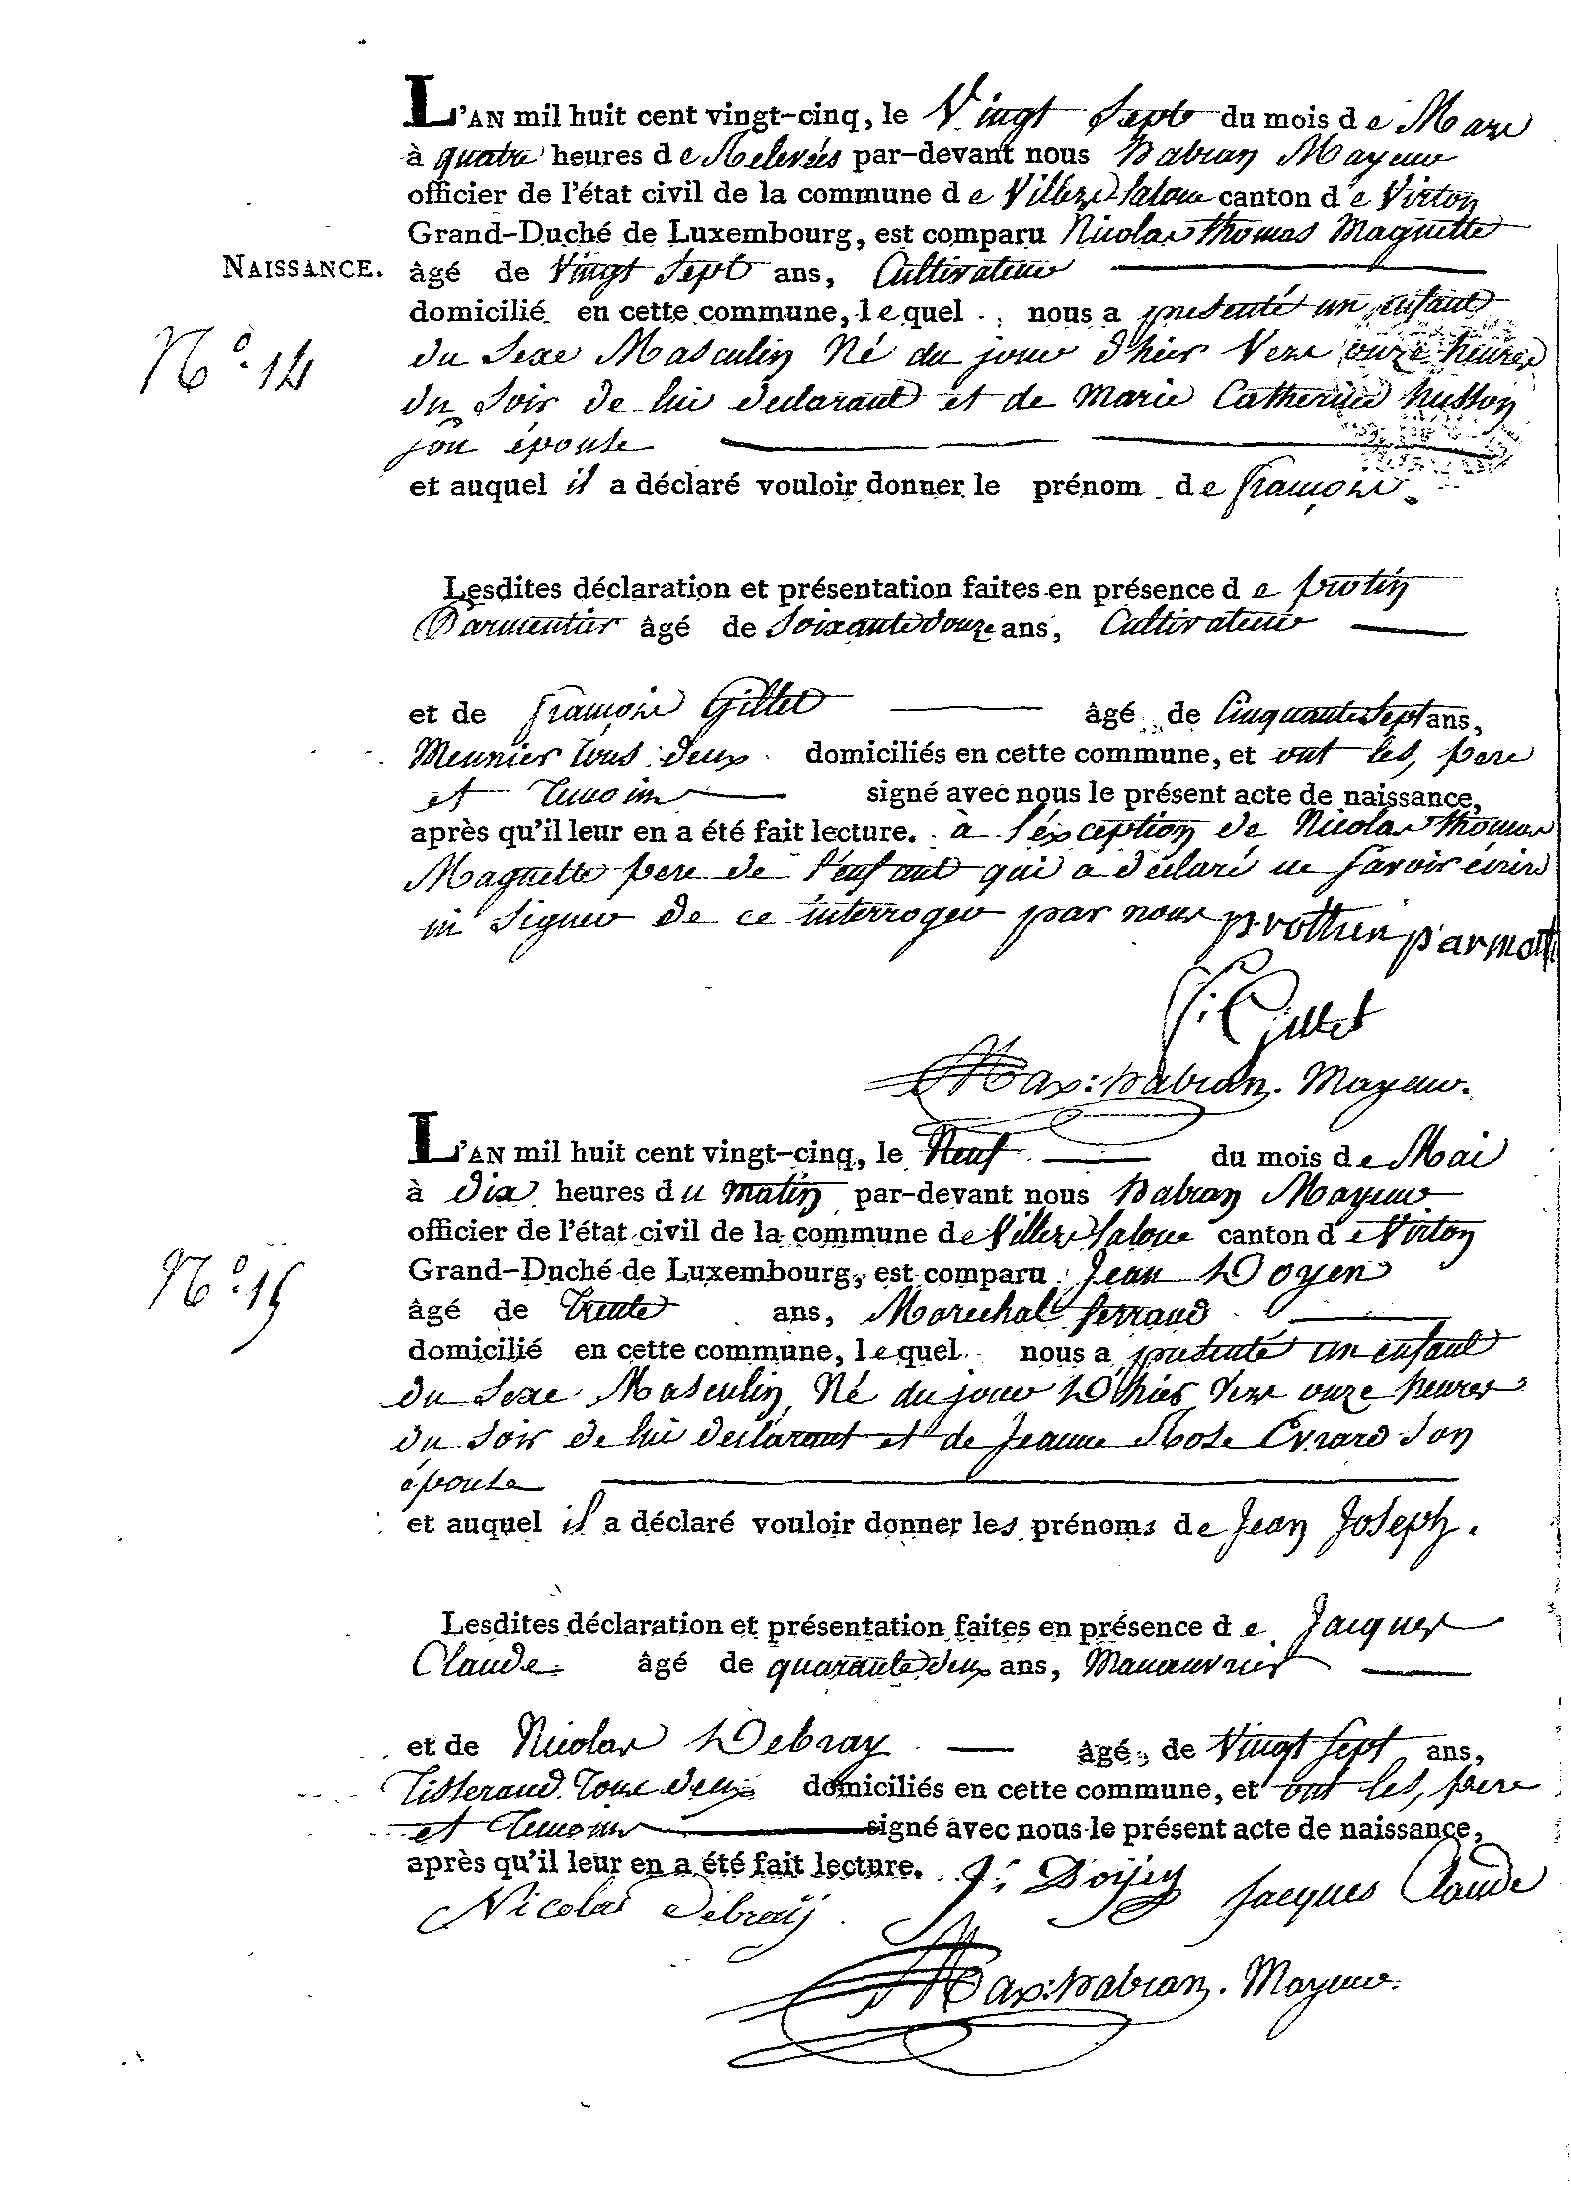 L'AN mil huit cent vingt-cinq, le Vingt Sept du mois de Mars
à quatre heures de Relevées par-devant nous habran Mayeur
officier de l'état civil de la commune de Villers Laloue canton de Virton
Grand-Duché de Luxembourg, est comparu Nicolas thomas Maquette
NAISSANCE. âgé de Vingt Sept ans, Cultivateur
domicilié en cette commune, lequel nous a présenté un enfant
N.° 14 du Sexe Masculin Né du jour d'hier Vers onze heures
du Soir de lui déclarant et de Marie Catherine husson
son épouse
et auquel il a déclaré vouloir donner le prénom de françois.
Lesdites déclaration et présentation faites en présence de protin
Parmentier âgé de Soixante douze ans, Cultivateur
et de françois Gillet âgé de Cinquante Sept ans,
Meunier tous deux domiciliés en cette commune, et ont les, pere
et temoins signé avec nous le présent acte de naissance,
après qu'il leur en a été fait lecture. à l'éxception de Nicolas thomas
Maquette pere de l'enfant qui a déclaré ne savoir écrire
ni Signer de ce interroger par nous prothin parmat
f: Gillet
Max: habran. Mayeur.
L'AN mil huit cent vingt-cinq, le Neuf du mois de Mai
à dix heures du matin par-devant nous habran Mayeur
officier de l'état civil de la commune de Villers Laloue canton de Virton
Grand-Duché de Luxembourg, est comparu Jean Doyen
N.° 15 âgé de trente ans, Marechal ferrand
domicilié en cette commune, lequel nous a présenté un enfant
du Sexe Masculin, Né du jour D'hier Vers onze heures
du Soir de lui déclarant et de Jeanne Rose Evrard Son
épouse
et auquel il a déclaré vouloir donner les prénoms de Jean Joseph.
Lesdites déclaration et présentation faites en présence de Jacques
Claude âgé de quarante deux ans, Manoeuvrier
et de Nicolas Debray âgé de Vingt Sept ans,
Tisserand tous deux domiciliés en cette commune, et ont les, pere
et temoins signé avec nous le présent acte de naissance,
après qu'il leur en a été fait lecture. J: Doijen Jacques Claude
Nicolas Debraÿ
Max: habran. Mayeur.